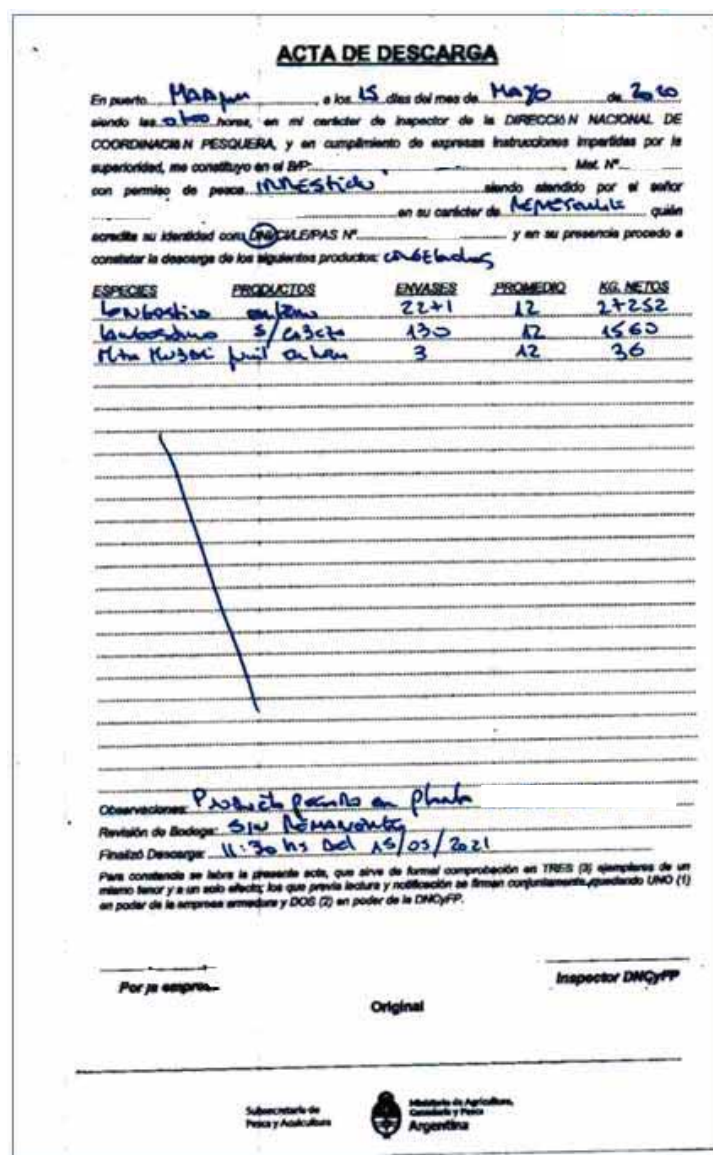 ACTA DE DESCARGA
En puerto MAR , a los 15 días del mes de MAYO de 2020
siendo las horas, en mi carácter de Inspector de la DIRECCIÓN NACIONAL DE
COORDINACIÓN PESQUERA, y en cumplimiento de expresas instrucciones impartidas por la
superioridad, me constituyo en el B/P: Mat. N°
con permiso de pesca IRRESTRICTO siendo atendido por el señor
en su carácter de quién
acredita su identidad con: DNI/CI/LE/PAS N° y en su presencia procedo a
constatar la descarga de los siguientes productos: congelados
ESPECIES PRODUCTOS ENVASES PROMEDIO KG. NETOS
Langostino entero 2271 12 27252
Langostino s/ 130 12 1560
entera 3 12 36
Observaciones: Producto pesado en planta
Revisión de Bodega: SIN REMANENTE
Finalizó Descarga: 11:30 hs del 15/05/2021
Para constancia se labra la presente acta, que sirve de formal comprobación en TRES (3) ejemplares de un
mismo tenor y a un solo efecto; los que previa lectura y notificación se firman conjuntamente, quedando UNO (1)
en poder de la empresa armadora y DOS (2) en poder de la DNCyFP.
Por la empresa
Inspector DNCyFP
Original
Subsecretaría de
Pesca y Acuicultura
Ministerio de Agricultura,
Ganadería y Pesca
Argentina